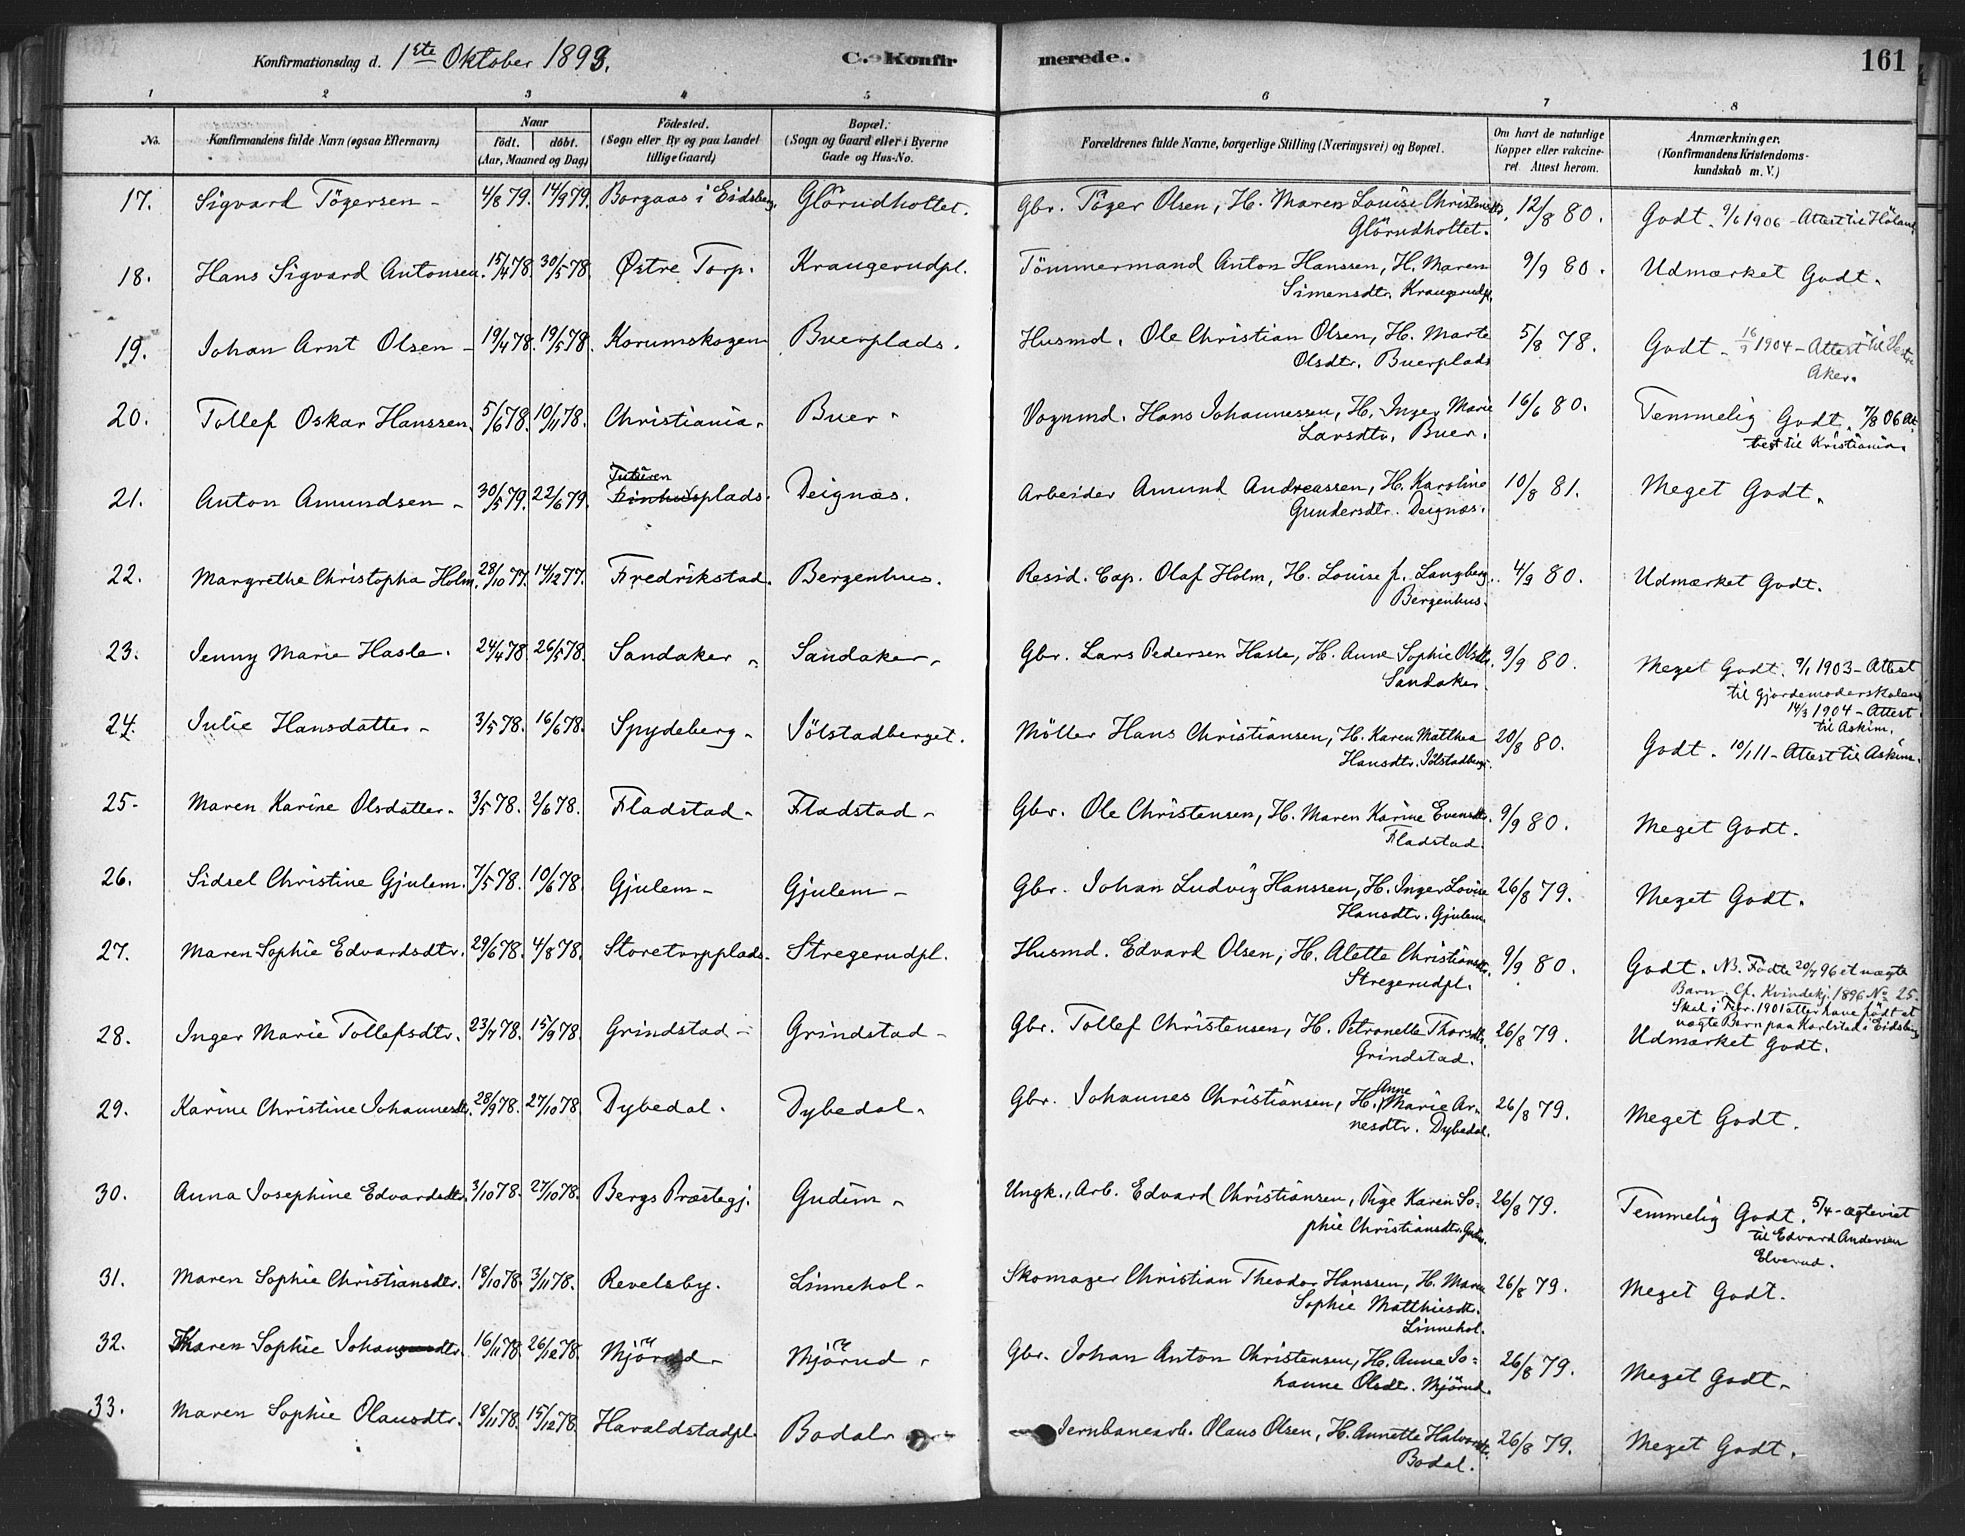 Konfirmationsdag d. 1ste Oktober 1893.
C. Konfirmerede.
161
1 2 3 4 5 6 7 8
No.
Konfirmandens fulde Navn (ogsaa Efternavn)
Naar
født. døbt.
(Aar, Maaned og Dag)
Fødested.
(Sogn eller By og paa Landet tillige Gaard)
Bopæl.
(Sogn og Gaard eller i Byerne Gade og Hus-No.
Forældrenes fulde Navne, borgerlige Stilling (Næringsvei) og Bopæl.
Om havt de naturlige Kopper eller vakcineret. Attest herom.
Anmærkninger.
(Konfirmandens Kristendomskundskab m. V.)
17. Sigvard Tögersen - 4/8 79. 14/9 79. Borgaas i Eidsberg Glörudholtet. Gbr. Töger Olsen, H. Maren Louise Christensdtr. 12/8 80. Godt. 9/6 1906 - Attest til Höland
Glörudholtet.
18. Hans Sigvard Antonsen. 15/4 78. 30/5 78. Østre Torp. Kraugerudpl. Tömmermand Anton Hanssen, H. Maren 9/9 80. Udmærket Godt.
Simensdtr. Kraugerudpl.
19. Johan Arnt Olsen - 19/4 78. 19/5 78. Korumskogen Buerplads. Husmd. Ole Christian Olsen, H. Marte 5/8 78. Godt - 16/9 1904 - Attest til Vestre
Olsdtr. Buerplads Aker.
20. Tollef Oskar Hanssen. 5/6 78. 10/11 78. Christiania. Buer. Vognmd. Hans Johannessen, H. Inger Marie 16/6 80. Temmelig Godt. 7/8 06 At
Larsdtr. Buer. test til Kristiania.
21. Anton Amundsen - 30/5 79. 22/6 79. plads. Deignæs. Arbeider Amund Andreassen, H. Karoline 10/8 81. Meget Godt.
Gundersdtr. Deignæs.
22. Margrethe Christopha Holm. 28/10 77. 14/12 77. Fredrikstad. Bergenhus. Resid. Cap. Olaf Holm, H. Louise f. Langberg. 4/9 80. Udmærket Godt.
Bergenhus.
23. Jenny Marie Hasle. 24/4 78. 26/5 78. Sandaker - Sandaker - Gbr. Lars Pedersen Hasle, H. Anne Sophie Olsdtr. 9/9 80. Meget Godt. 9/1 1903 - Attest
Sandaker til Gjordemoderskolen
14/3 1904 - Attest
til Askim.
24. Julie Hansdatter - 3/5 78. 16/6 78. Spydeberg - Jölstadberget. Möller Hans Christiansen, H. Karen Matthea 20/8 80. Godt. 10/1 11 - Attest til Askim.
Hansdtr. Jölstadberg.
25. Maren Karine Olsdatter. 3/5 78. 2/6 78. Fladstad - Fladstad - Gbr. Ole Christensen, H. Maren Karine Evensdtr. 9/9 80. Meget Godt.
Fladstad
26. Sidsel Christine Gjulem. 7/5 78. 10/6 78. Gjulem - Gjulem - Gbr. Johan Ludvig Hanssen, H. Inger Lovise 26/8 79. Meget Godt.
Hansdtr. Gjulem
27. Maren Sophie Edvardsdtr. 29/6 78. 4/8 78. Storetorpplads. Stregerudpl. Husmd. Edvard Olsen, H. Alette Christiansdtr. 9/9 80. Godt. NB. Födte 20/7 96 et uægte
Stregerudpl. Barn. Cf. Kvindekj. 1896 No 25.
Skal i Febr. 1901 atter have födt et
uægte Barn paa Karlstad i Eidsberg
28. Inger Marie Tollefsdtr. 23/7 78. 15/9 78. Grindstad - Grindstad - Gbr. Tollef Christensen, H. Petronelle Thorsdtr. 26/8 79. Udmærket Godt.
Grindstad.
29. Karine Christine Johannesdtr. 28/9 78. 27/10 78. Dybedal. Dybedal. Gbr. Johannes Christiansen, H. Anne Marie Ar- 26/8 79. Meget Godt.
nesdtr. Dybedal.
30. Anna Josephine Edvardsdtr. 3/10 78. 27/10 78. Bergs Præstegj. Gudim - Ungk., Arb. Edvard Christiansen, Pige Karen So- 26/8 79. Temmelig Godt. 5/4 - ægteviet
phie Christiansdtr. Gudim. til Edvard Andersen
Elverud.
31. Maren Sophie Christiansdtr. 18/10 78. 3/11 78. Revelsby. Linnehol - Skomager Christian Theodor Hanssen, H. Maren 26/8 79. Meget Godt.
Sophie Matthiesdtr.
Linnehol.
32. Karen Sophie Johansdtr. 16/11 78. 26/12 78. Mjörud - Mjörud - Gbr. Johan Anton Christensen, H. Anne Jo- 26/8 79. Meget Godt -
hanne Olsdtr. Mjörud.
33. Maren Sophie Olausdtr. 18/11 78. 15/12 78. Haraldstadpl. Bodal - Jernbanearb. Olaus Olsen, H. Annette Halvorsdtr. 26/8 79. Meget Godt.
Bodal.